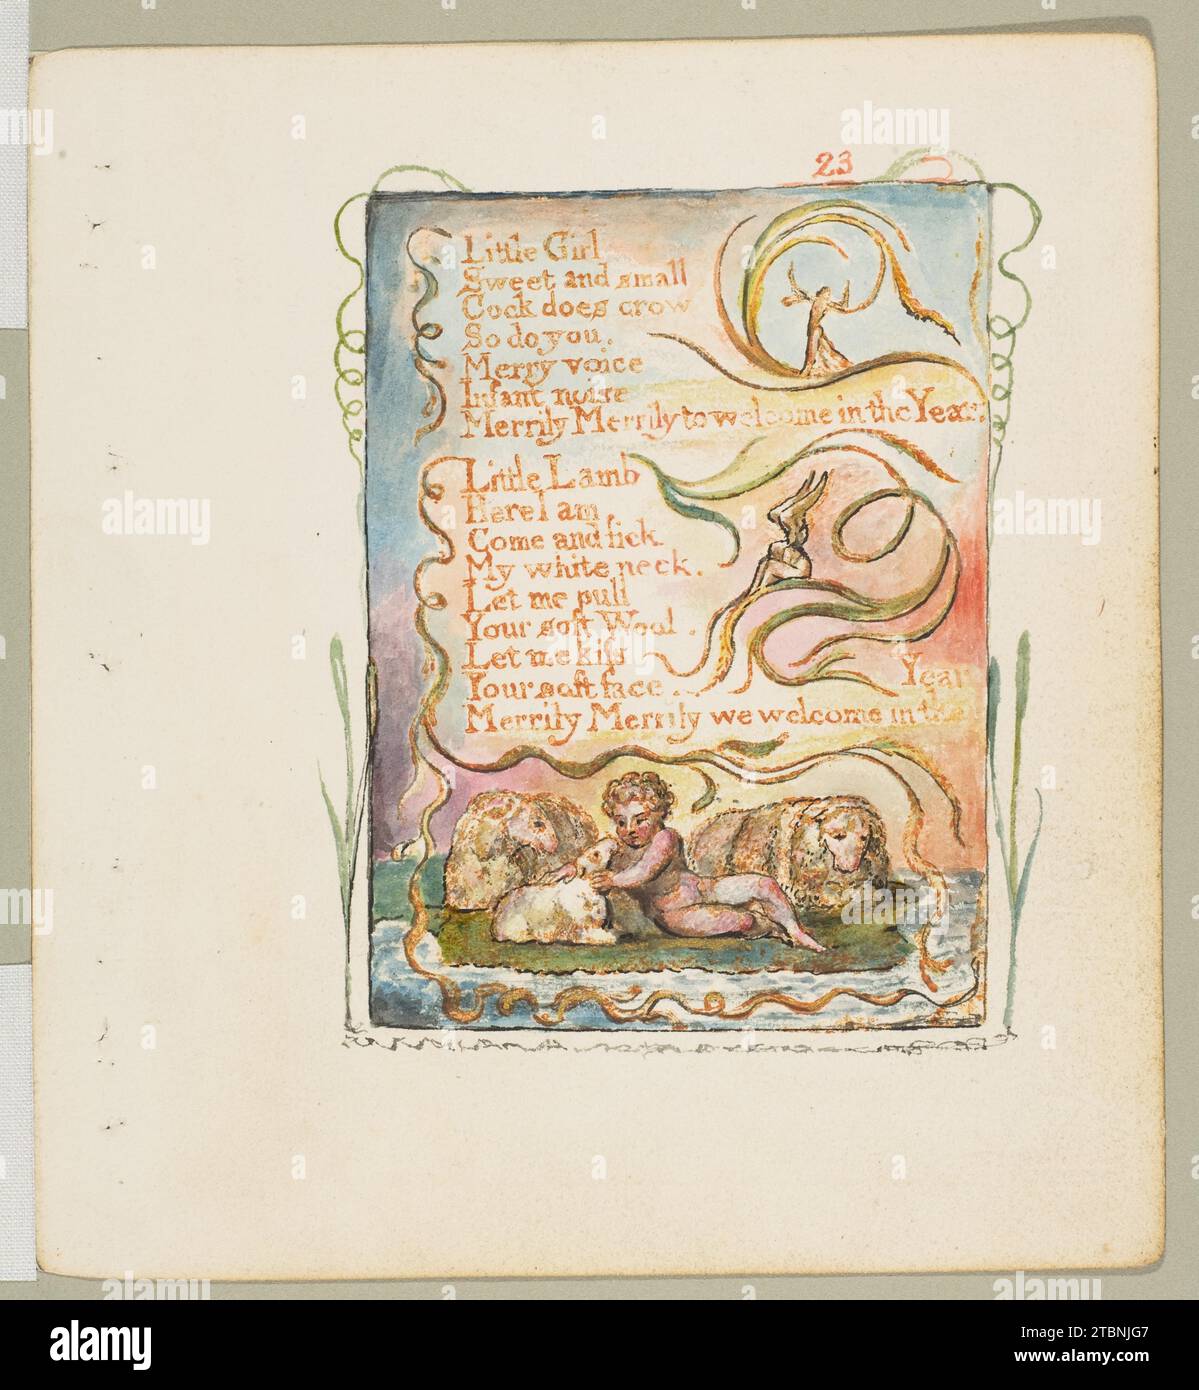 23
Little Girl
Sweet and small
Cock does crow
So do you.
Merry voice
Infant noise
Merrily Merrily to welcome in the Year
Little Lamb
Here I am,
Come and lick
My white neck.
Let me pull
Your soft Wool.
Let me kiss
Your soft face.
Year
Merrily Merrily we welcome in the
alamy
Image ID: 2TBNJG7
www.alamy.com